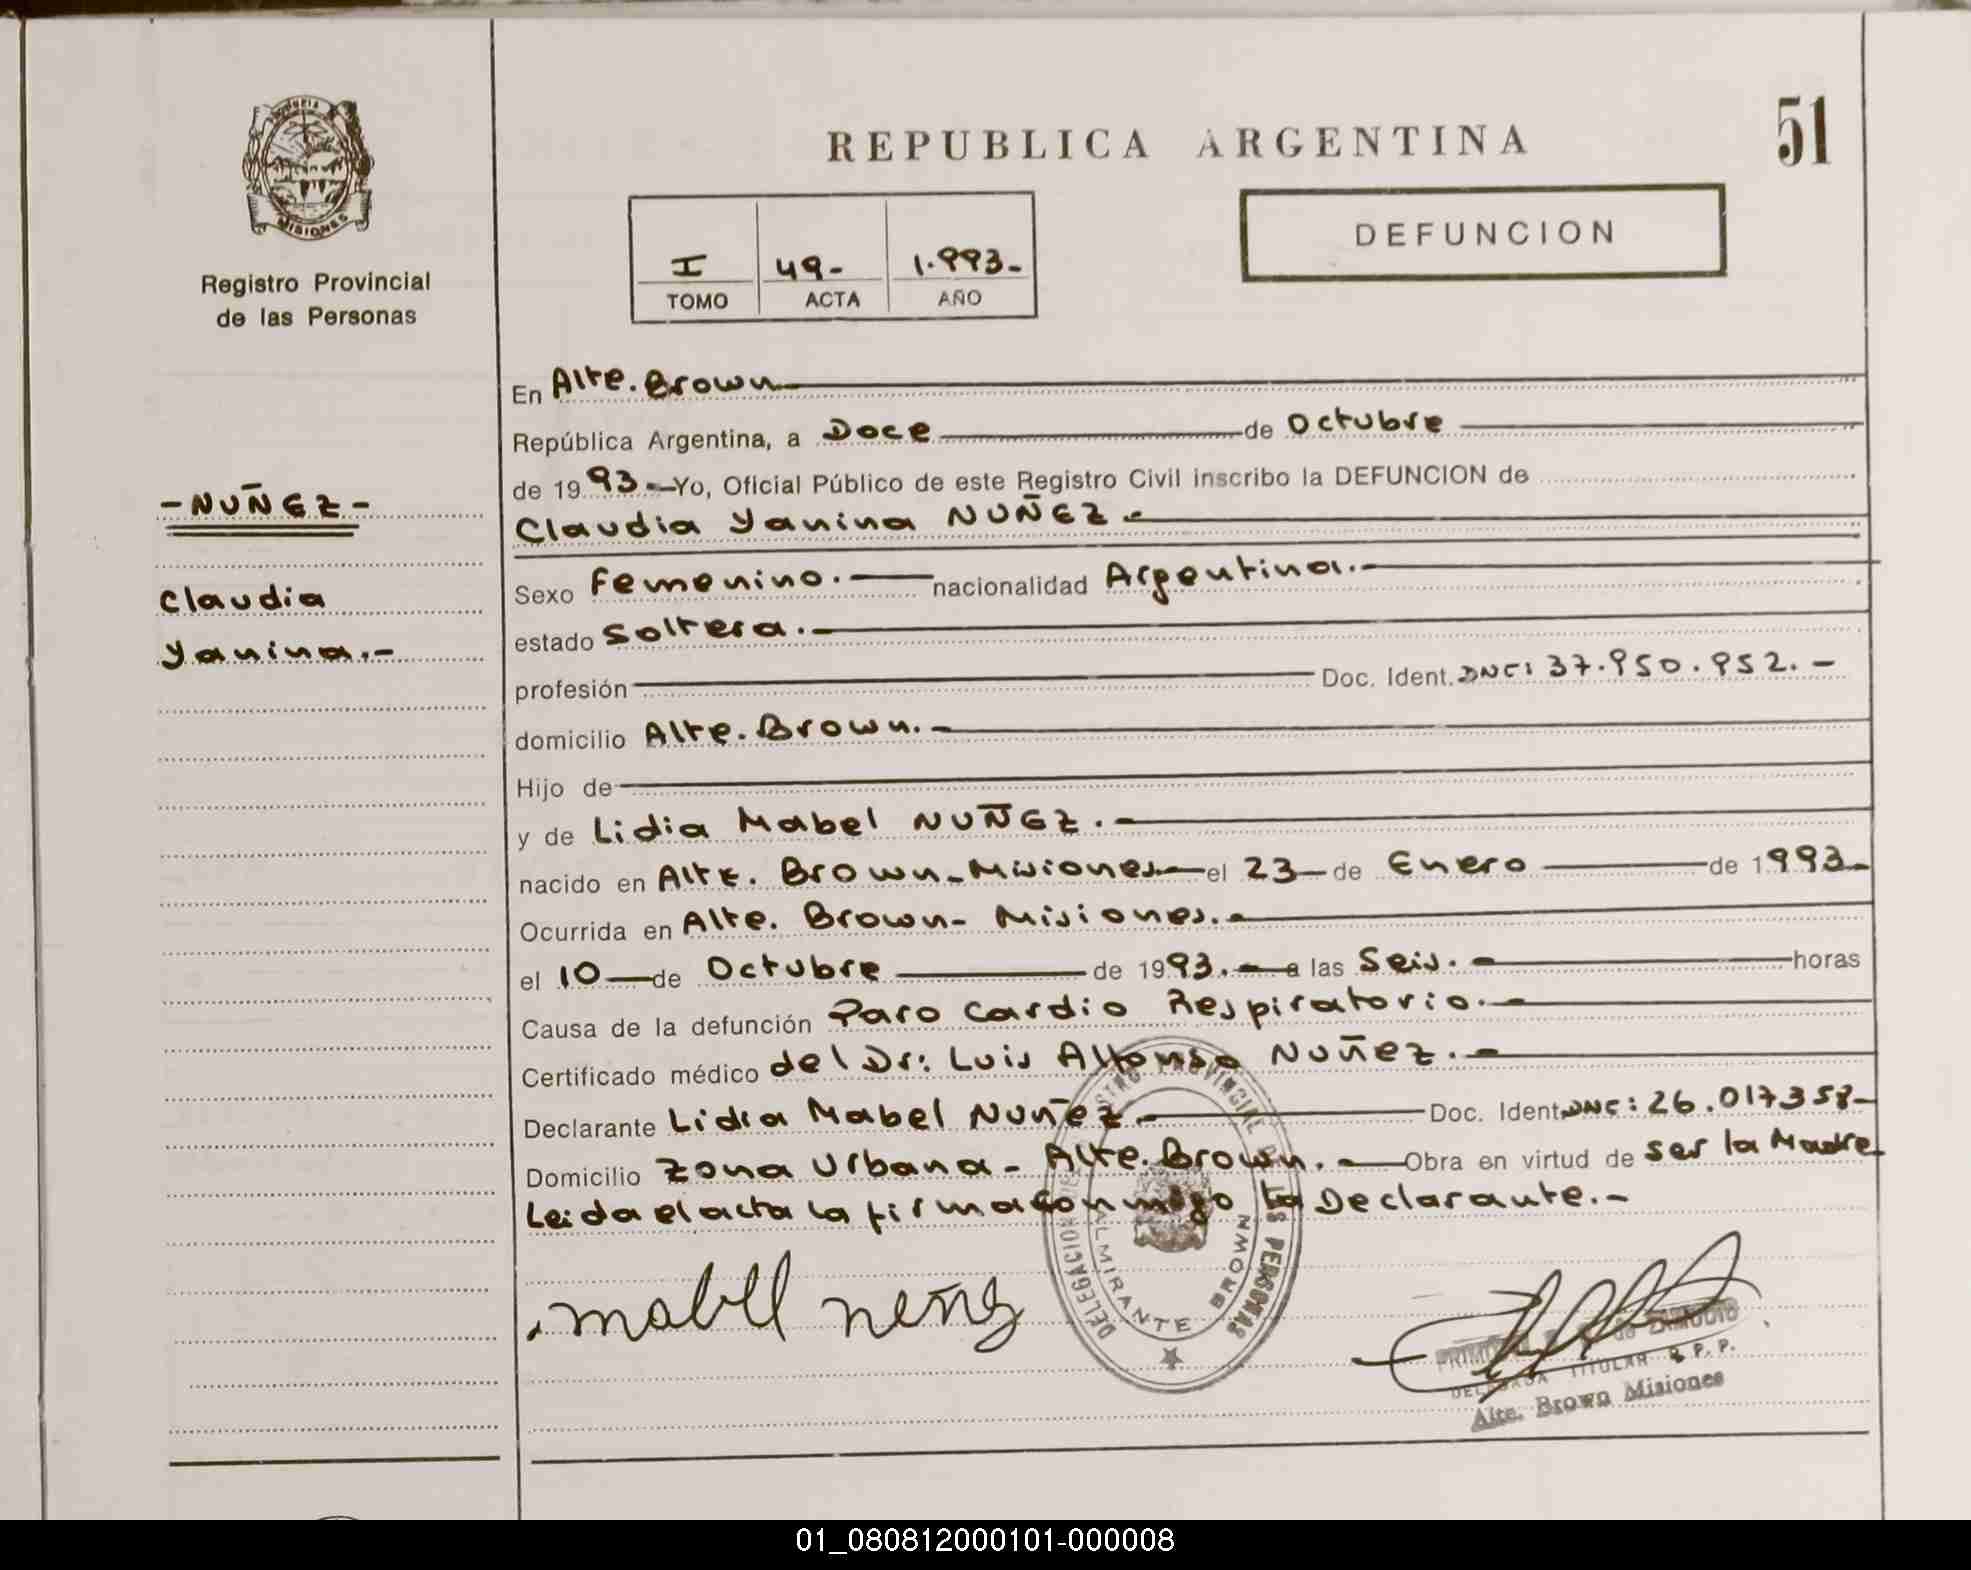 PROVINCIA
MISIONES
Registro Provincial
de las Personas
-NUÑEZ-
Claudia
Yanina.-
REPUBLICA ARGENTINA
51
I 49- 1.993-
TOMO ACTA AÑO
DEFUNCION
En Alte. Brown
República Argentina, a Doce de Octubre
de 1993.- Yo, Oficial Público de este Registro Civil inscribo la DEFUNCION de
Claudia Yanina NUÑEZ.-
Sexo Femenino.- nacionalidad Argentina.-
estado Soltera.-
profesión Doc. Ident. DNI: 37.950.952.-
domicilio Alte. Brown.-
Hijo de
y de Lidia Mabel NUÑEZ.-
nacido en Alte. Brown-Misiones- el 23- de Enero de 1993-
Ocurrida en Alte. Brown- Misiones.-
el 10 de Octubre de 1993.- a las Seis.- horas
Causa de la defunción Paro Cardio Respiratorio.-
Certificado médico del Dr: Luis Alfonso Nuñez.-
Declarante Lidia Mabel Nuñez.- Doc. Ident. DNI: 26.017358-
Domicilio Zona Urbana- Alte. Brown.- Obra en virtud de ser la Madre
Leida el acta la firma conmigo la Declarante.-
DELEGACION REGISTRO PROVINCIAL DE LAS PERSONAS
ALMIRANTE BROWN
mabel
de ZAMUDIO
DELEGADA TITULAR R.P.P.
Alte. Brown Misiones
01_080812000101-000008